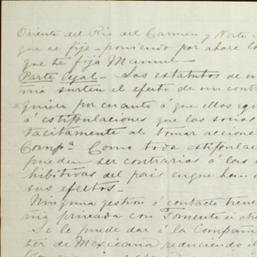 Oriente del Rio del Carmen y Norte
que se fije poniendo por ahora lo
que he fija Manuel
Parte legal. Los estatutos de
mia surten el efecto de un cont
quiera por cuanto á que ellos
á estipulaciones que los socios
tacitamente al tomar accione
Compª Como tods estipula
pueden ser contrarias á las
hibitivas del pais en que han
sus efectos.
Ninguna gestion ó contacto tiene
mia privada con Fomento
Se le puede dar á la Compañi
ter de Mexicana reduciendo